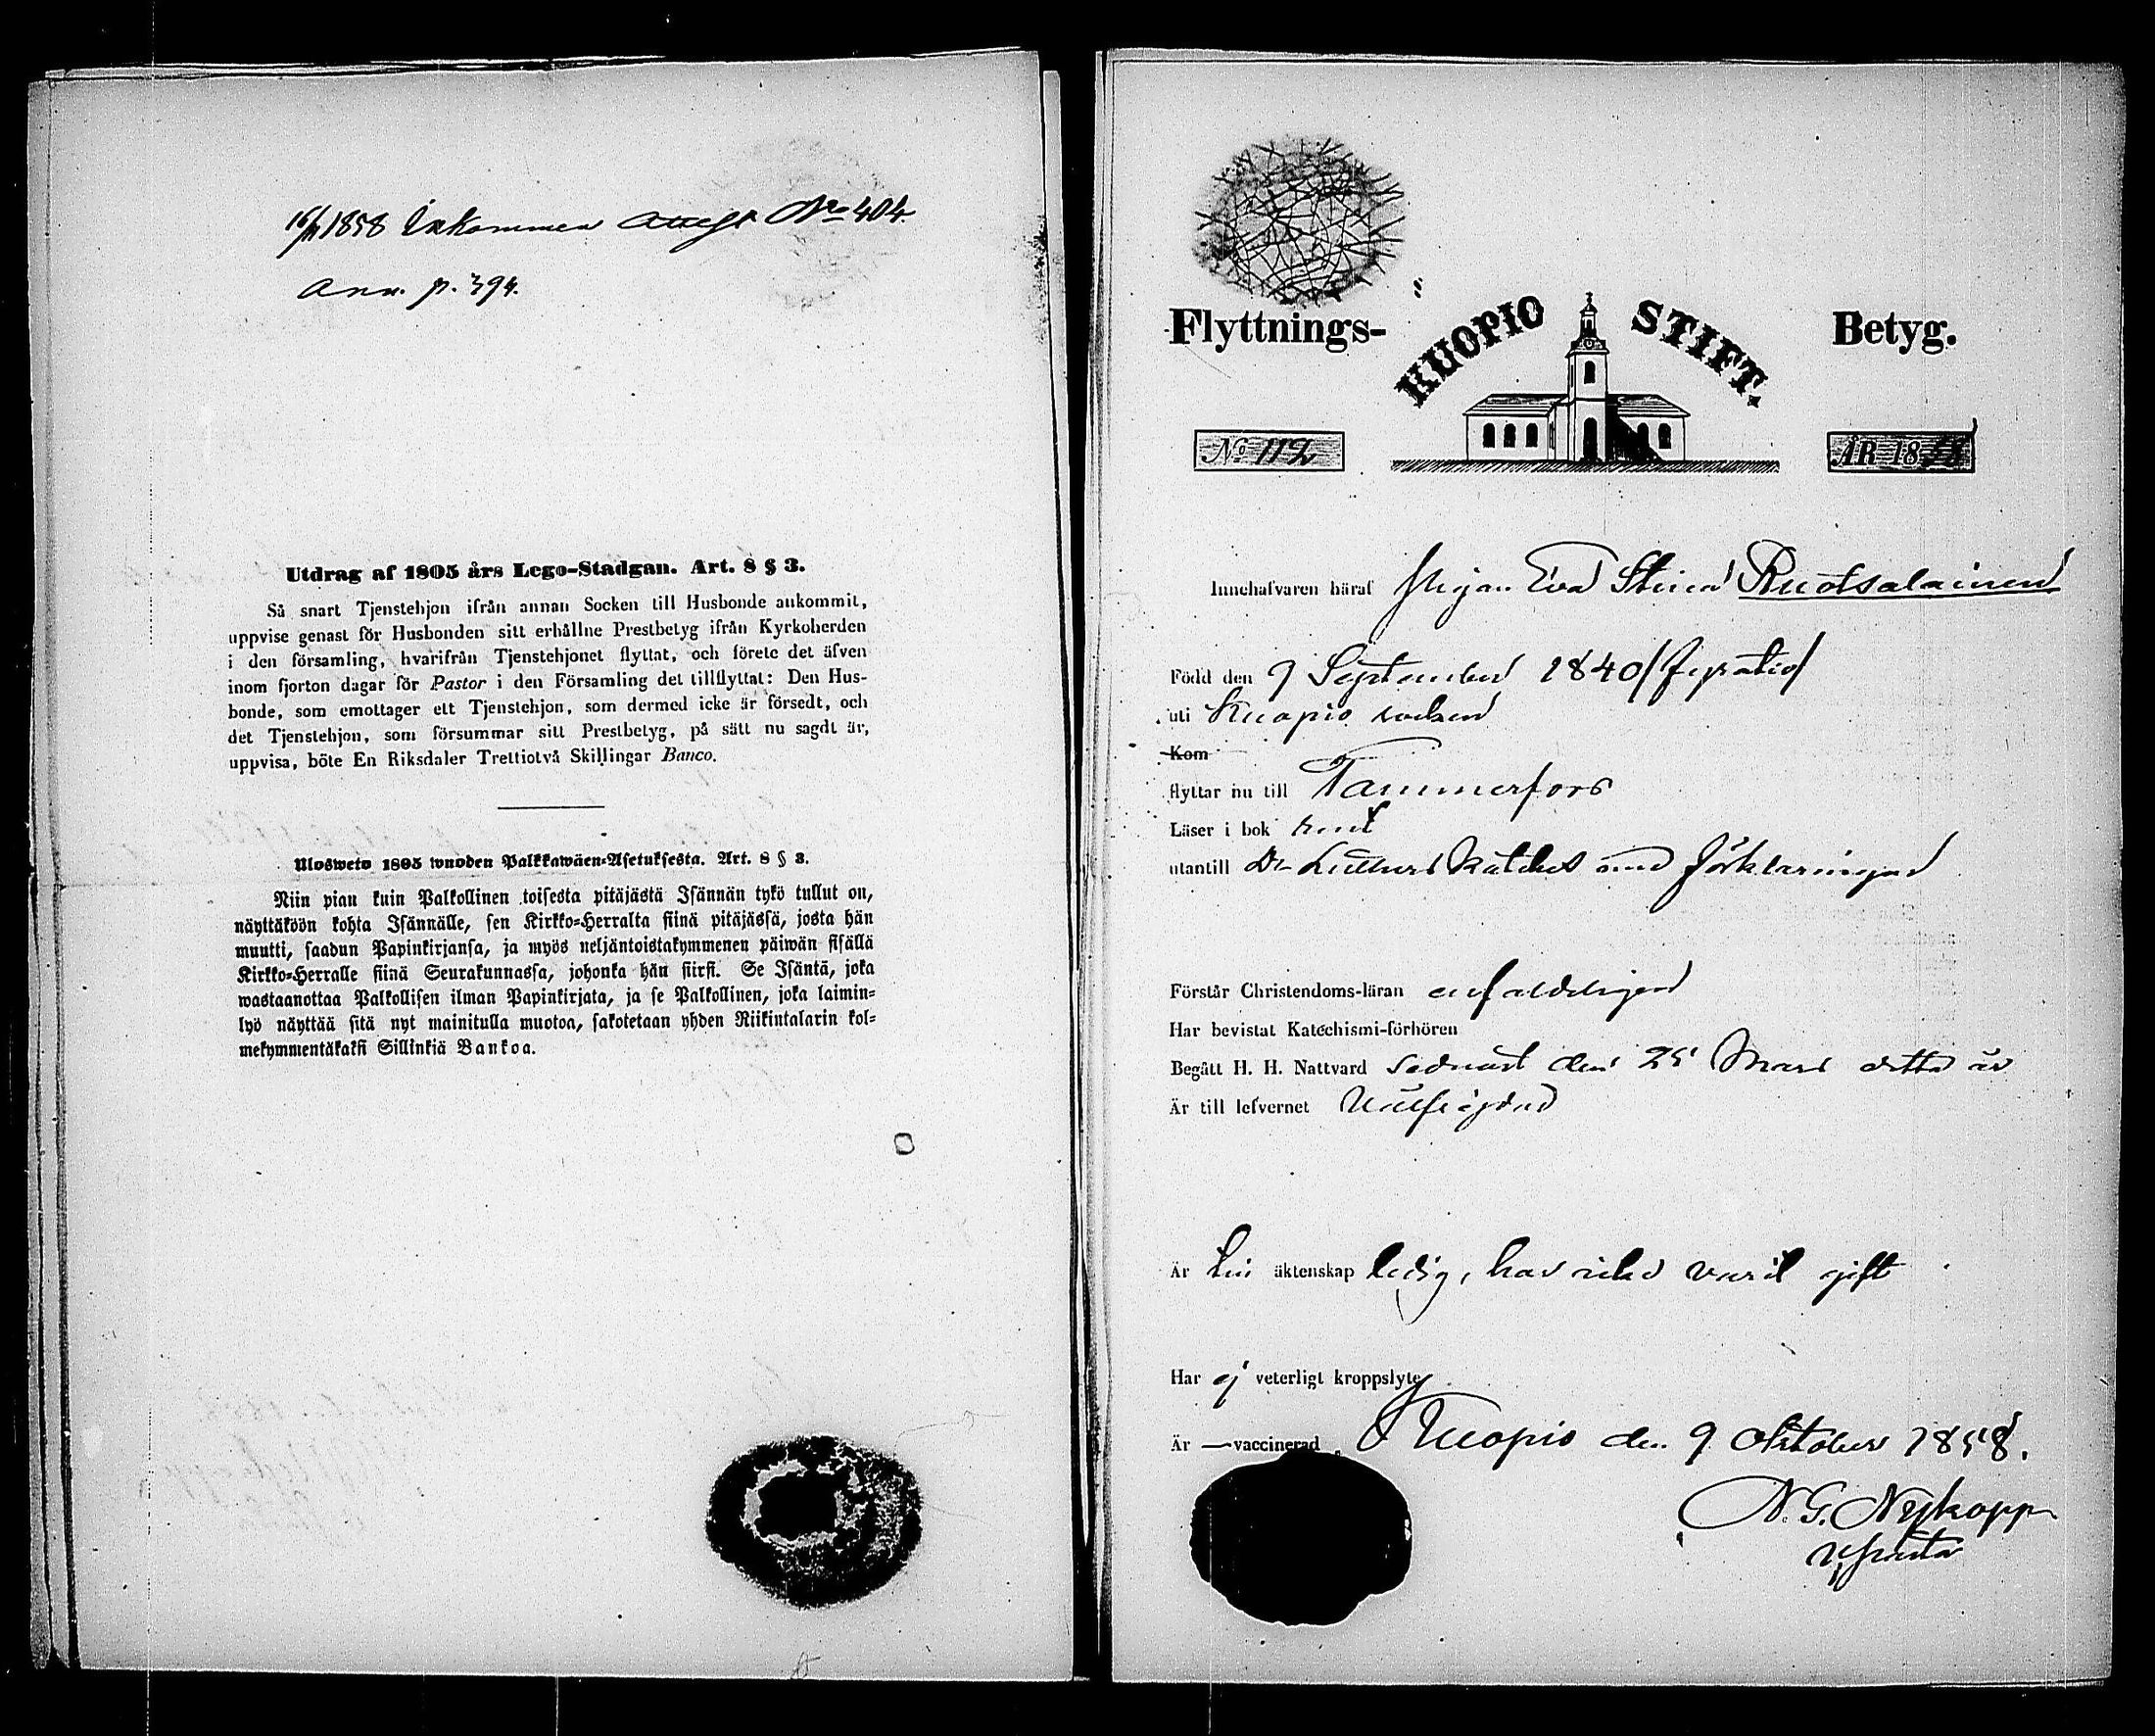 16/11 1858 Inkommen attest No 404.
Ann. p. 394.
Utdrag af 1805 års Lego-Stadgan. Art. 8 § 3.
Så snart Tjenstehjon ifrån annan Socken till Husbonde ankommit,
uppvise genast för Husbonden sitt erhållne Prestbetyg ifrån Kyrkoherden
i den församling, hvarifrån Tjenstehjonet flyttat, och förete det äfven
inom fjorton dagar för Pastor i den Församling det tillflyttat: Den Hus-
bonde, som emottager ett Tjenstehjon, som dermed icke är försedt, och
det Tjenstehjon, som försummar sitt Prestbetyg, på sätt nu sagdt är,
uppvisa, böte En Riksdaler Trettiotvå Skillingar Banco.
Ulosweto 1805 wuoden Palkkawäen-Asetuksesta. Art. 8 § 3.
Niin pian kuin Palkollinen toisesta pitäjästä Isännän tykö tullut on,
näyttäköön kohta Isännälle, sen Kirkko-Herralta siinä pitäjässä, josta hän
muutti, saadun Papinkirjansa, ja myös neljäntoistakymmenen päiwän sisällä
Kirkko-Herralle siinä Seurakunnassa, johonka hän siirsi. Se Isäntä, joka
wastaanottaa Palkollisen ilman Papinkirjata, ja se Palkollinen, joka laimin-
lyö näyttää sitä nyt mainitulla muotoa, sakotetaan yhden Riikintalarin kol-
mekymmentäkaksi Sillinkiä Bankoa.
Flyttnings- KUOPIO STIFT. Betyg.
No 112 ÅR 1858
Innehafvaren häraf Pigan Eva Stina Ruotsalainen
Född den 9 September 1840
uti Kuopio socken
Kom
flyttar nu till Tammerfors
Läser i bok rent
utantill Dr Luthers Katches med förklaringen
Förstår Christendoms-läran enfaldeligen
Har bevistat Katechismi-förhören
Begått H. H. Nattvard sednast den 25 Mars detta år
Är till lefvernet
Är till äktenskap ledig, har icke varit gift
Har ej veterligt kroppslyte
Är — vaccinerad. Kuopio den 9 Oktober 1858.
N. G. Nykopp